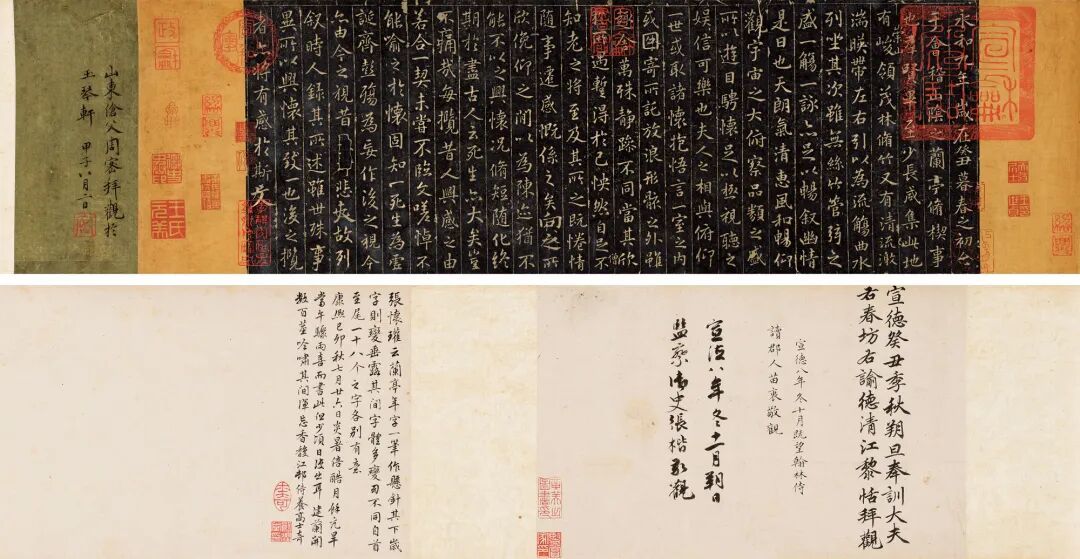 永和九年歲在癸丑暮春之初會
于會稽山陰之蘭亭脩稧事
也群賢畢至少長咸集此地
有崇山峻領茂林脩竹又有清流激
湍暎帶左右引以為流觴曲水
列坐其次雖無絲竹管弦之
盛一觴一詠亦足以暢叙幽情
是日也天朗氣清惠風和暢仰
觀宇宙之大俯察品類之盛
所以遊目騁懷足以極視聽之
娛信可樂也夫人之相與俯仰
一世或取諸懷抱悟言一室之內
或因寄所託放浪形骸之外雖
趣舍萬殊靜躁不同當其欣
於所遇暫得於己怏然自足不
知老之將至及其所之既惓情
隨事遷感慨係之矣向之所
欣俛仰之閒以為陳迹猶不
能不以之興懷況脩短隨化終
期於盡古人云死生亦大矣豈
不痛哉每攬昔人興感之由
若合一契未嘗不臨文嗟悼不
能喻之於懷固知一死生為虛
誕齊彭殤為妄作後之視今
亦由今之視昔悲夫故列
叙時人錄其所述雖世殊事
異所以興懷其致一也後之攬
者亦將有感於斯文
山東傖父周密拜觀於
王琴軒 甲子八月二日
宣德癸丑季秋朔旦奉訓大夫
右春坊右諭德清江黎恬拜觀
宣德八年冬十月既望翰林侍
讀郡人苗衷敬觀
宣德八年冬十一月朔日
監察御史張楷敬觀
張懷瓘云蘭亭年字一筆作懸針其下歲
字則變垂露其間字體多變而不同自首
至尾一十八个之字各別有意
康熙己卯秋七月廿六日炎暑酷月餘亢旱
當午驟雨喜而書此但少頃日復出耳 建蘭開
數百莖吟嘯其間渾忘香馥江邨侍養高士奇